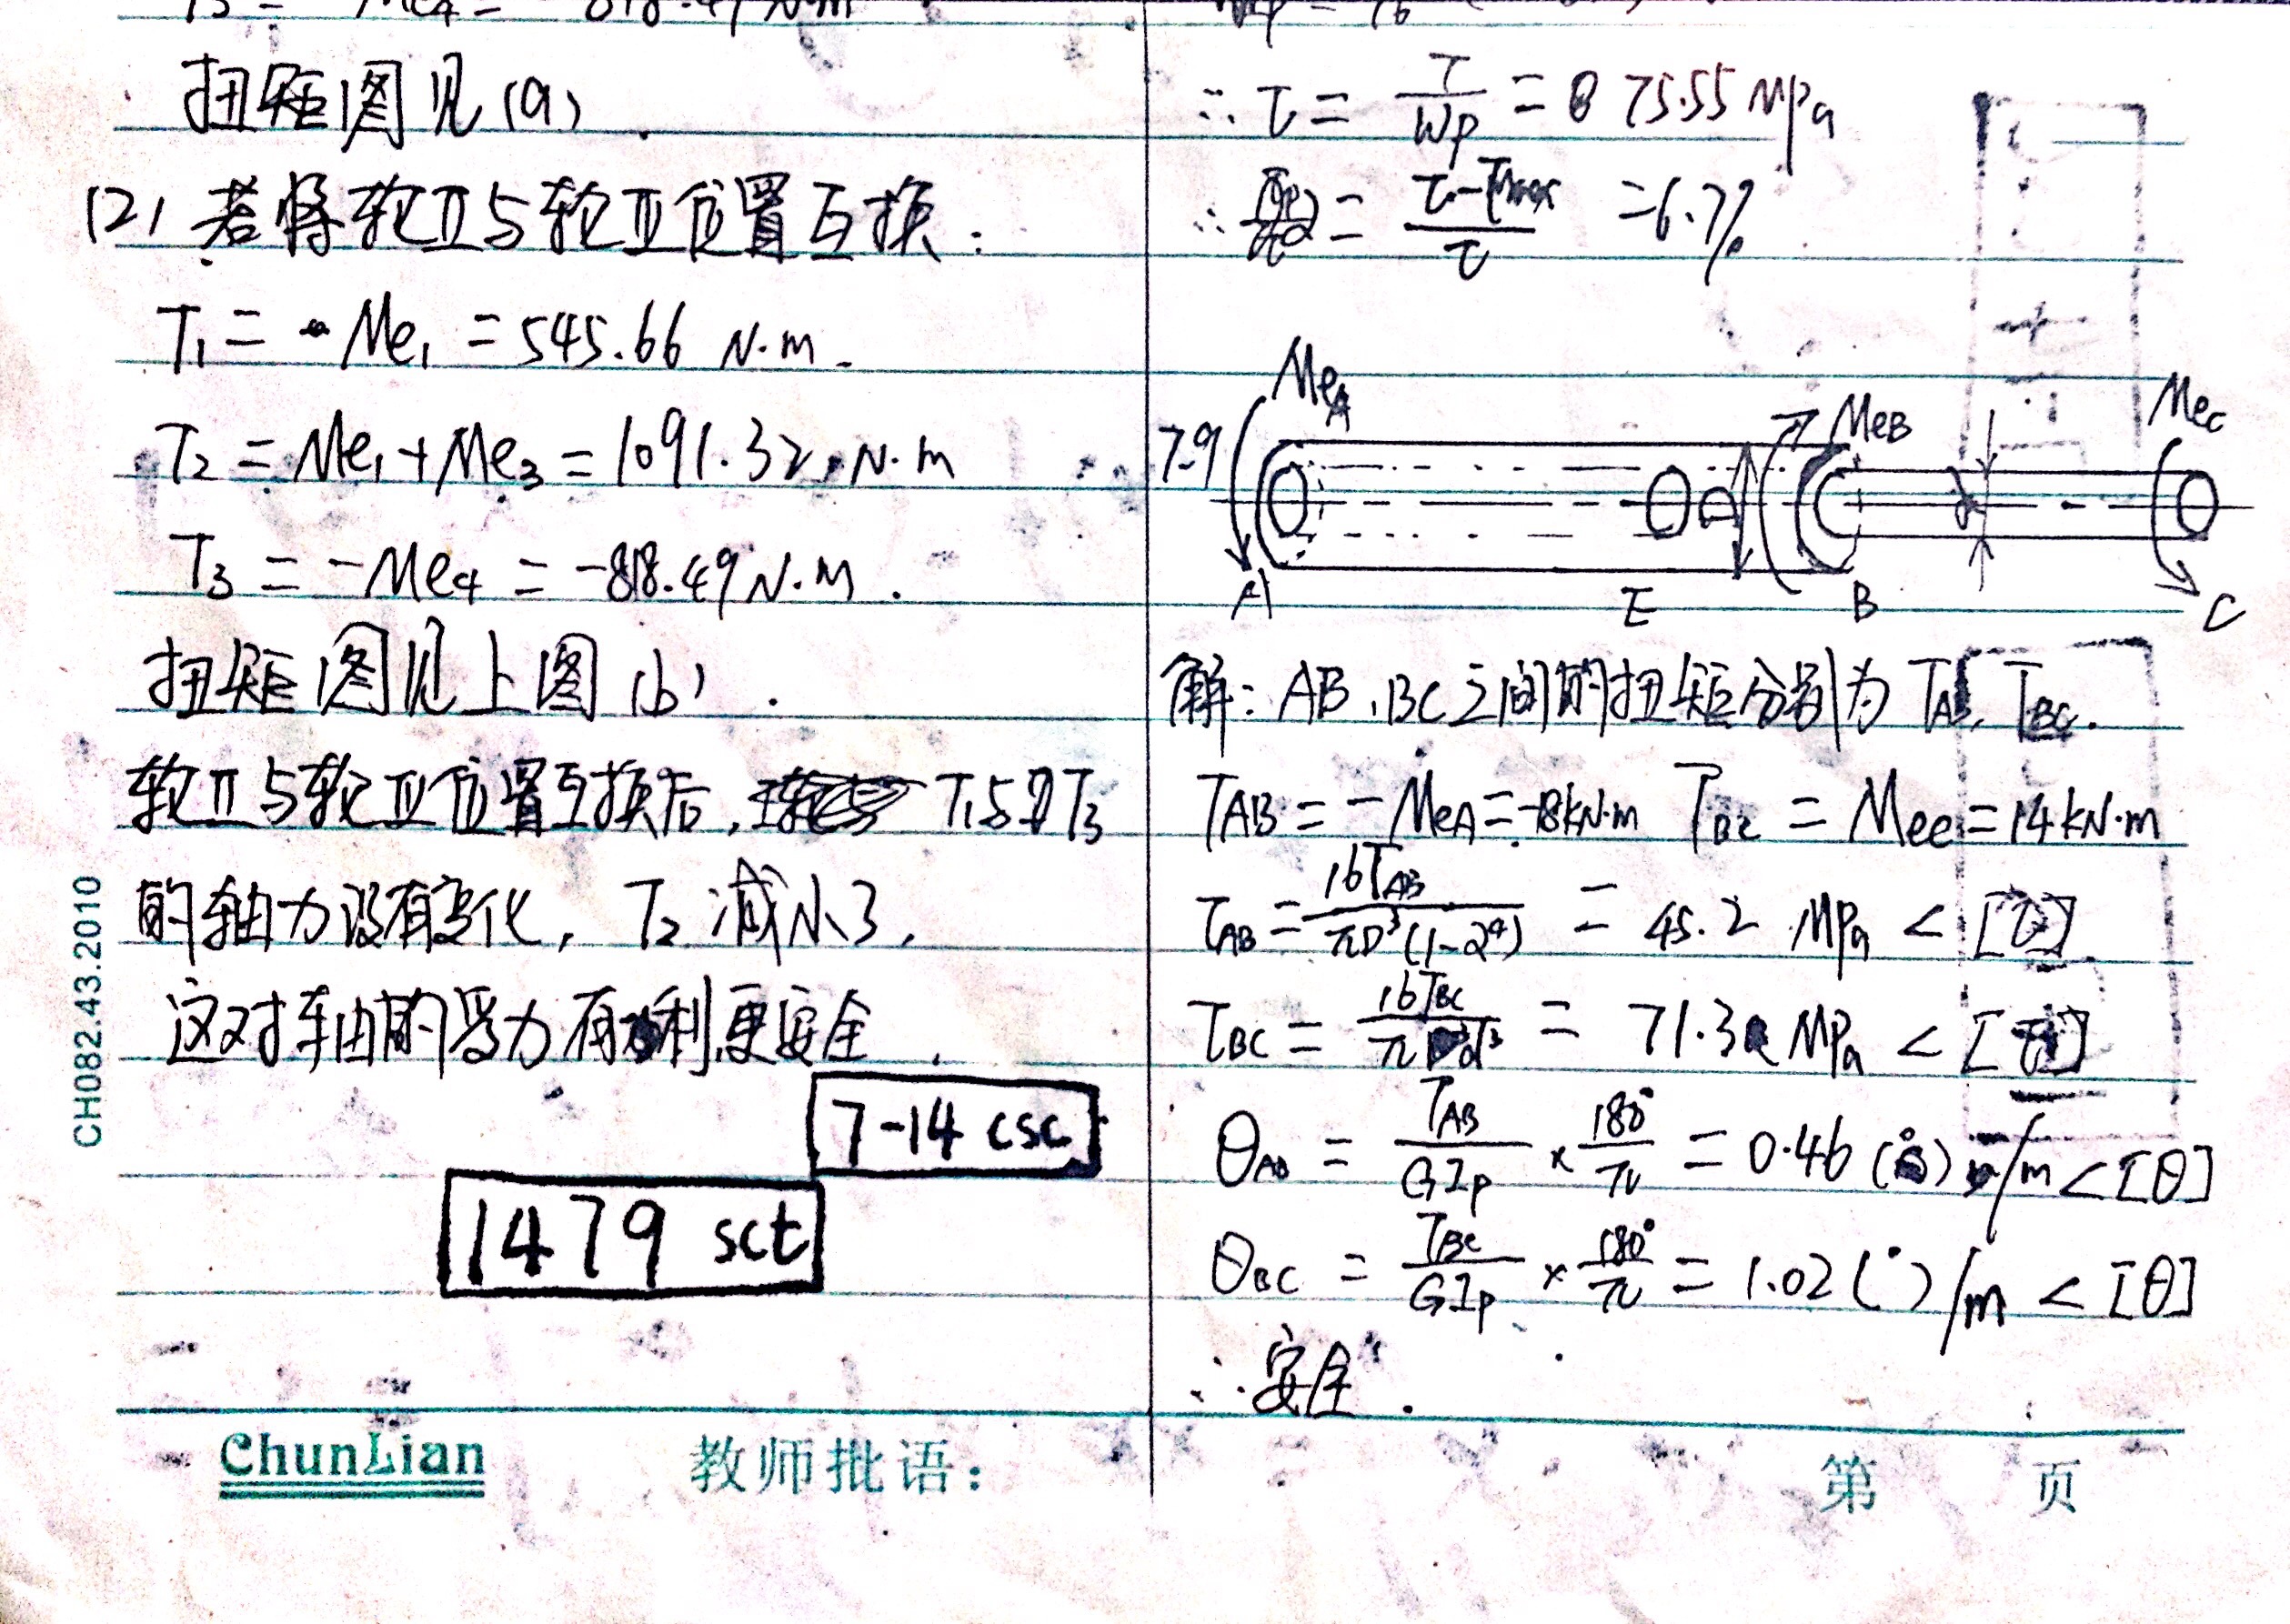 扭矩图见(a)
(2) 若将轮Ⅱ与轮Ⅲ位置互换:
T₁ = Me₁ = 545.66 N·m.
T₂ = Me₁+Me₃ = 1091.32 N·m
T₃ = -Me₄ = -818.49 N·m.
扭矩图见上图(b).
轮Ⅱ与轮Ⅲ位置互换后, T₁与T₃
的轴力没有变化, T₂减小了,
这对轴的受力有利,更安全.
7-14 csc
1479 sct
∴ τ = T/Wp = 75.55 MPa
= (τ-τmax)/τ = 6.7%
7.9
MeA
MeB
MeC
D
d
A E B C
解: AB、BC之间的扭矩分别为 TAB, TBC.
TAB = -MeA = -18kN·m TBC = Mec = 14kN·m
τAB = 16TAB/πD³(1-α⁴) = 45.2 MPa < [τ]
τBC = 16TBC/πd³ = 71.3 MPa < [τ]
θAB = TAB/GIp × 180°/π = 0.46 (°)/m < [θ]
θBC = TBC/GIp × 180°/π = 1.02 (°)/m < [θ]
∴ 安全.
CH082.43.2010
ChunLian 教师批语: 第 页